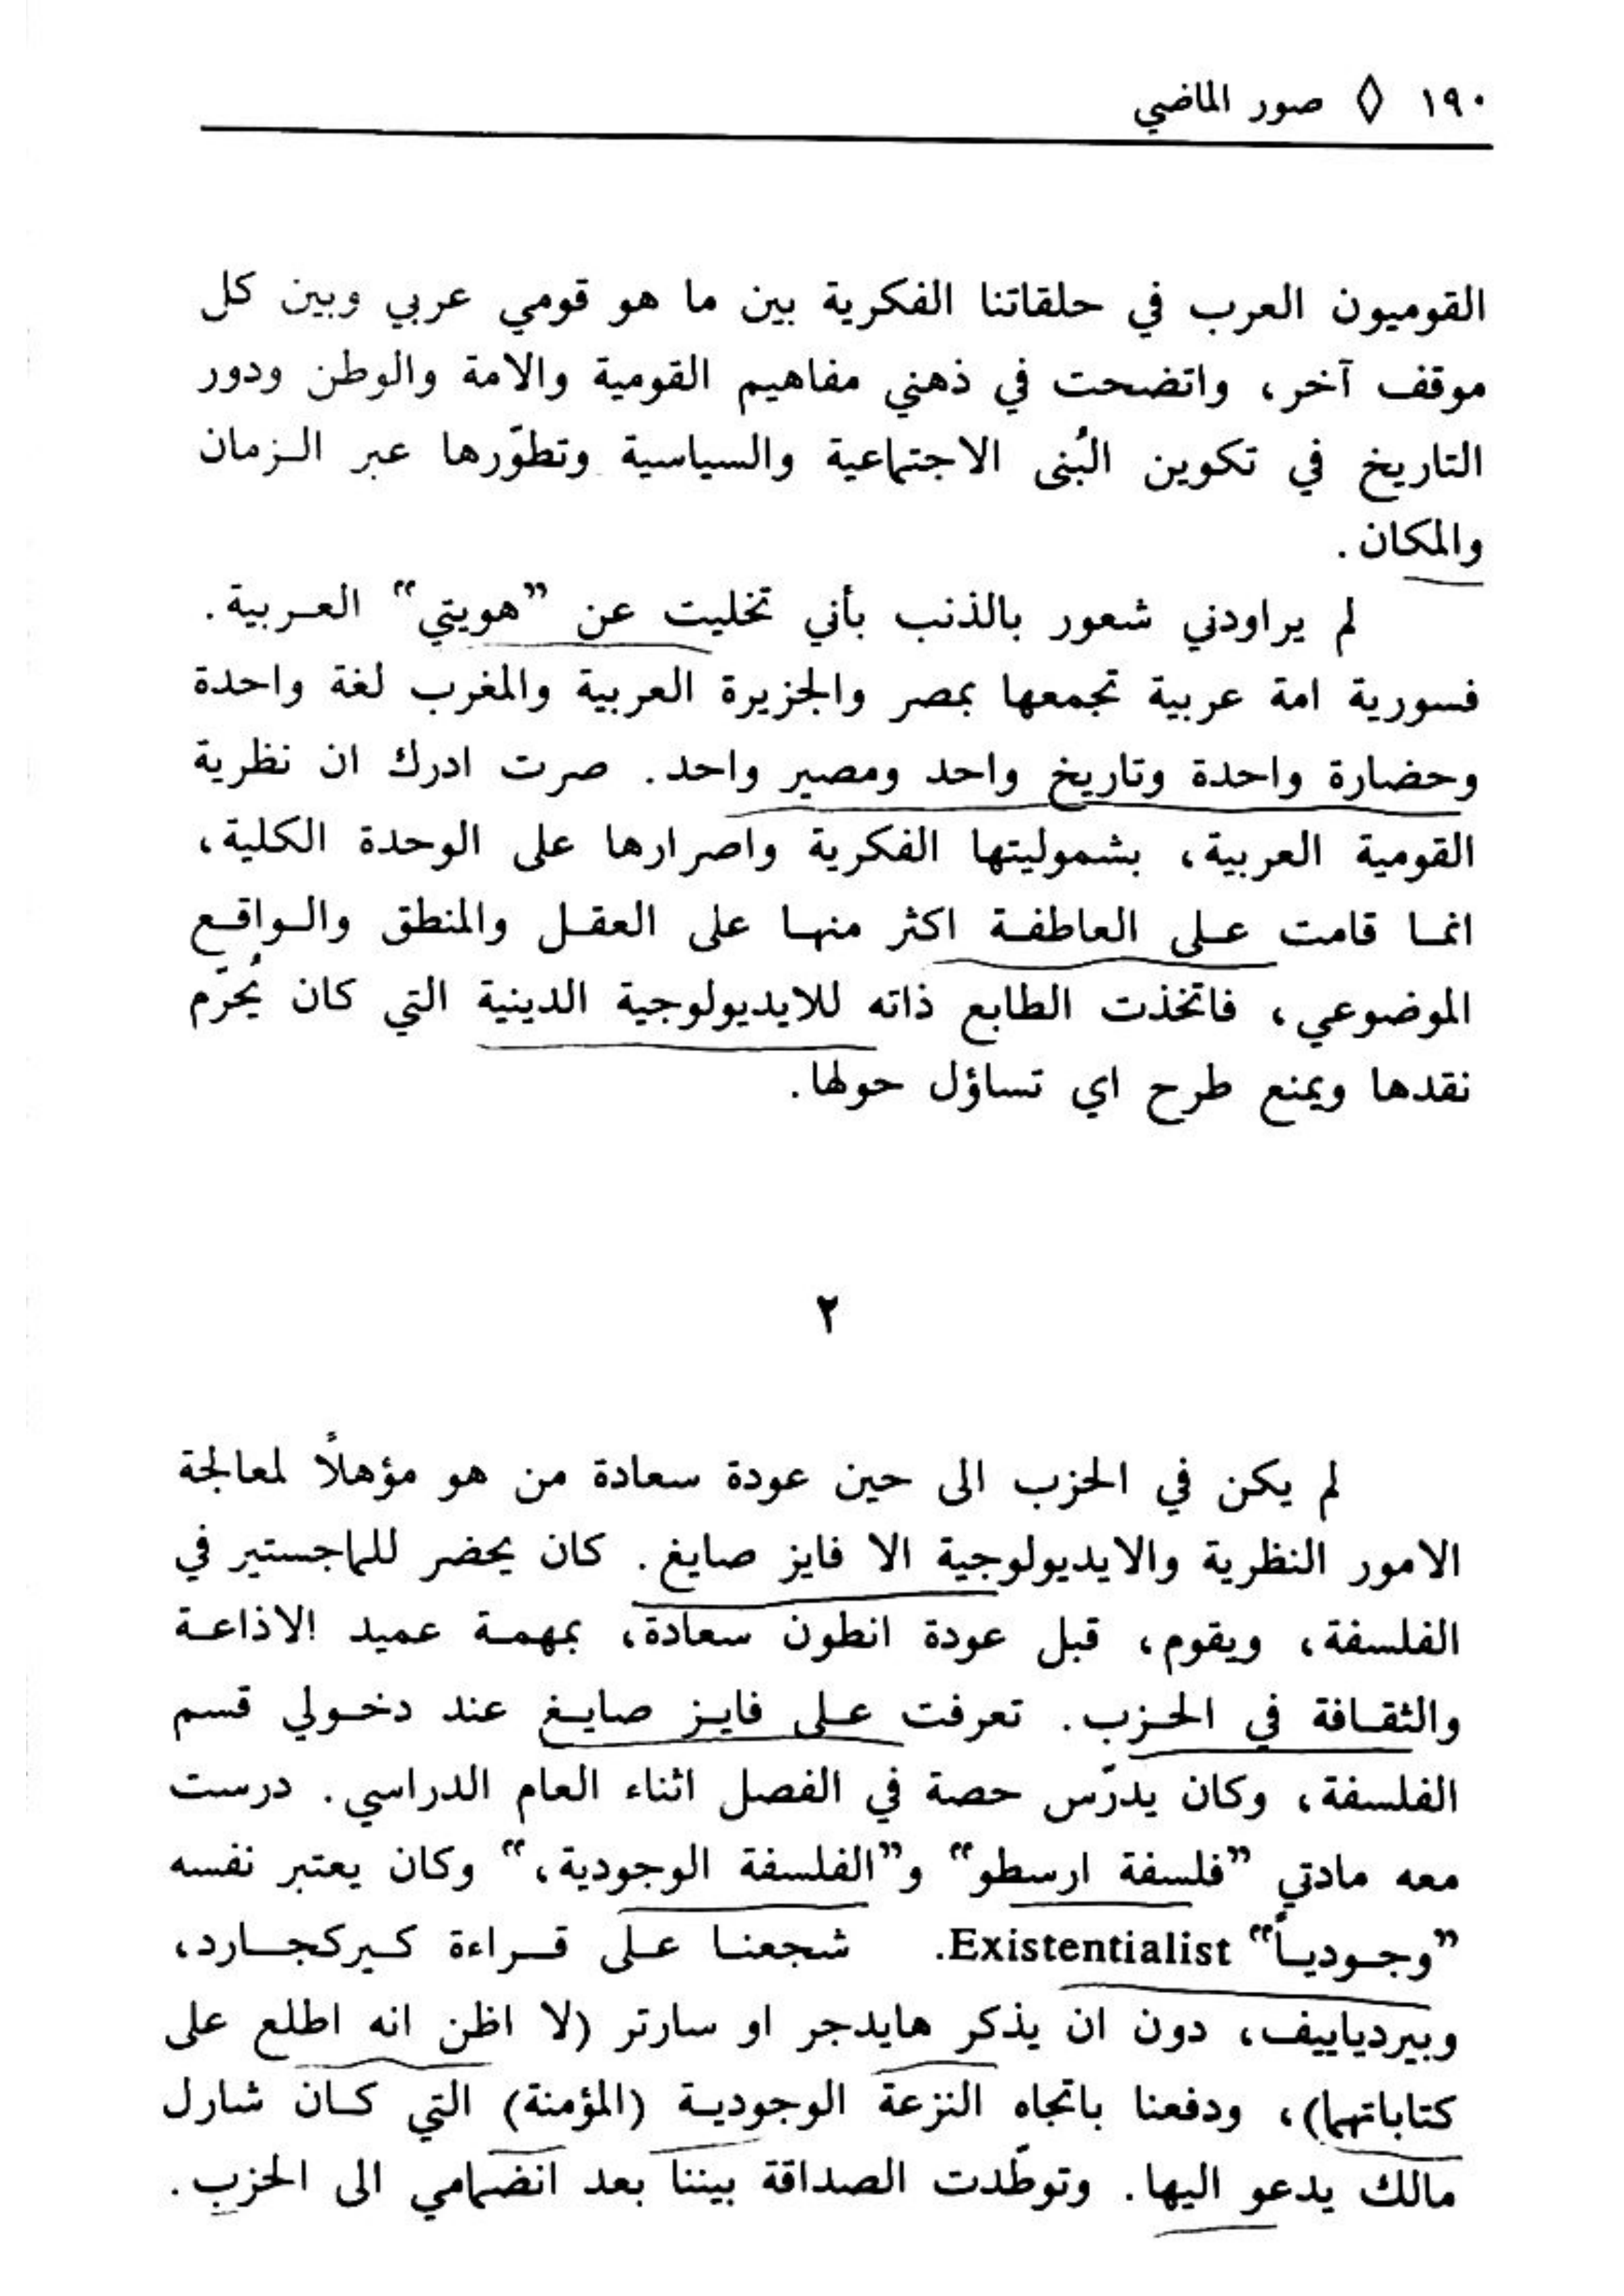 ١٩٠ ◊ صور الماضي
القوميون العرب في حلقاتنا الفكرية بين ما هو قومي عربي وبين كل
موقف آخر، واتضحت في ذهني مفاهيم القومية والامة والوطن ودور
التاريخ في تكوين البُنى الاجتماعية والسياسية وتطوّرها عبر الـزمان
والمكان.
لم يراودني شعور بالذنب بأني تخليت عن ”هويتي“ العـربية.
فسورية امة عربية تجمعها بمصر والجزيرة العربية والمغرب لغة واحدة
وحضارة واحدة وتاريخ واحد ومصير واحد. صرت ادرك ان نظرية
القومية العربية، بشموليتها الفكرية واصرارها على الوحدة الكلية،
انمـا قامت عـلى العاطفـة اكثر منهـا على العقـل والمنطق والـواقـع
الموضوعي، فاتخذت الطابع ذاته للايديولوجية الدينية التي كان يُحرَّم
نقدها ويمنع طرح اي تساؤل حولها.
٢
لم يكن في الحزب الى حين عودة سعادة من هو مؤهلاً لمعالجة
الامور النظرية والايديولوجية الا فايز صايغ. كان يحضر للماجستير في
الفلسفة، ويقوم، قبل عودة انطون سعادة، بمهمـة عميد الاذاعـة
والثقـافة في الحـزب. تعرفت عـلى فايـز صايـغ عند دخـولي قسم
الفلسفة، وكان يدرّس حصة في الفصل اثناء العام الدراسي. درست
معه مادتي ”فلسفة ارسطو“ و”الفلسفة الوجودية،“ وكان يعتبر نفسه
”وجـوديـاً“ Existentialist. شجعنـا عـلى قـراءة كـيركجـارد،
وبيردياييف، دون ان يذكر هايدجر او سارتر (لا اظن انه اطلع على
كتاباتهما)، ودفعنا باتجاه النزعة الوجوديـة (المؤمنة) التي كـان شارل
مالك يدعو اليها. وتوطّدت الصداقة بيننا بعد انضمامي الى الحزب.